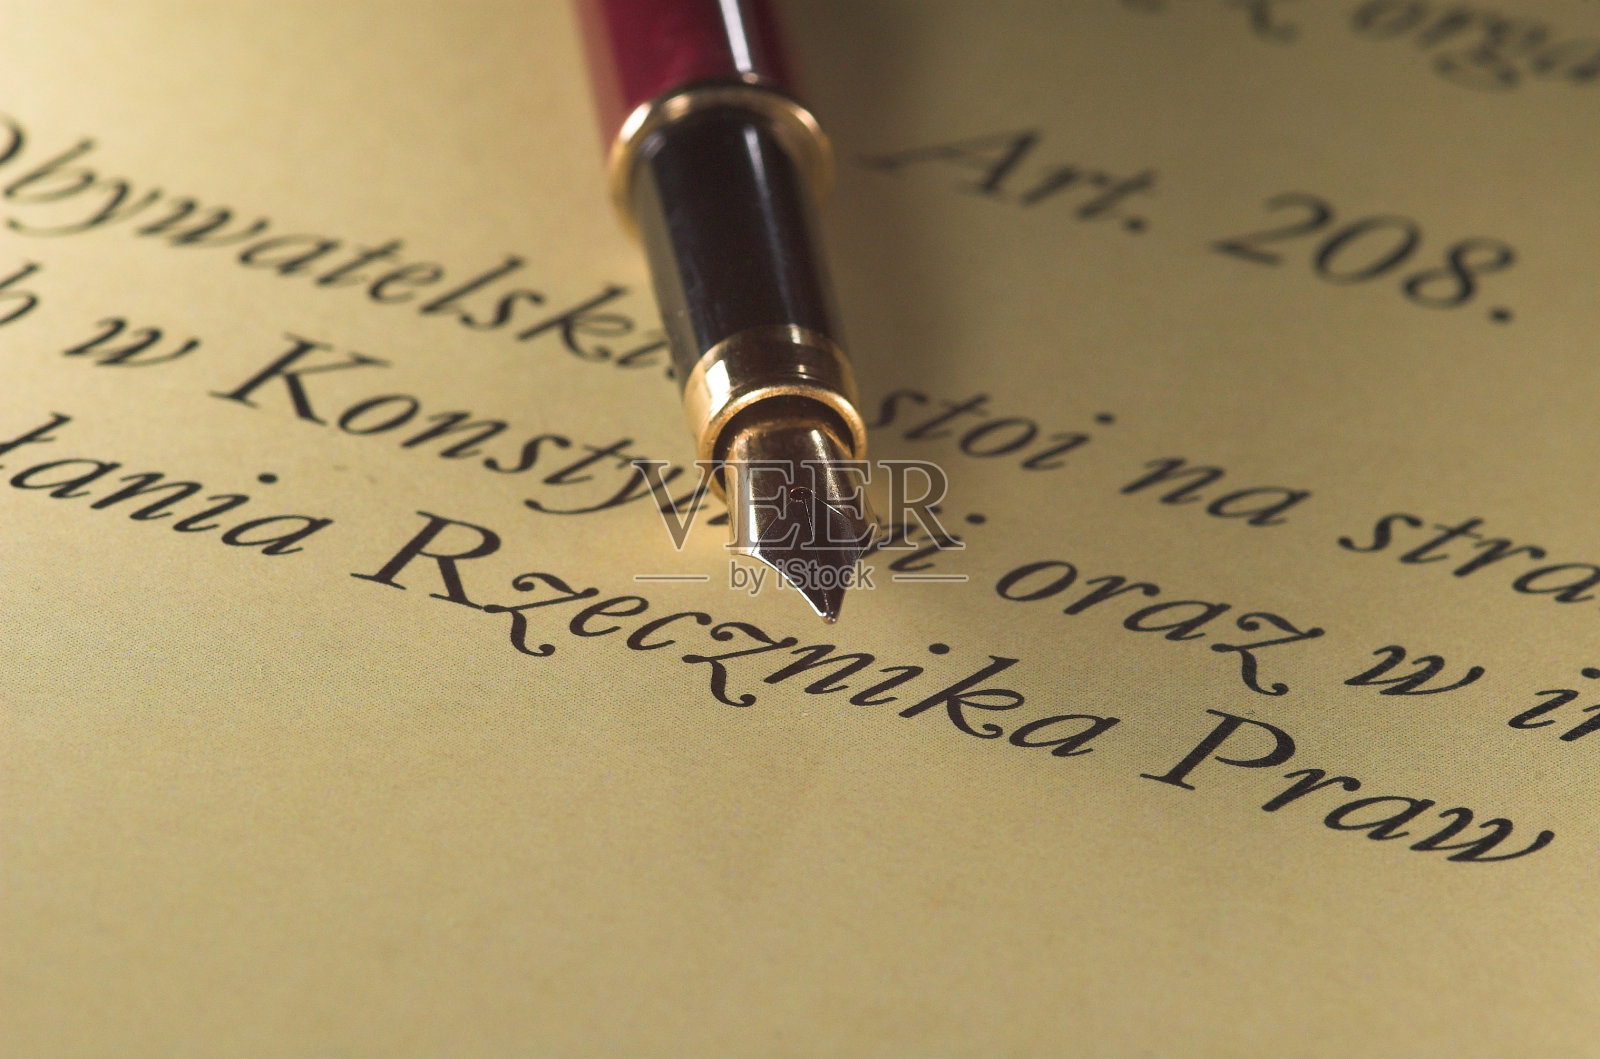 z orga
Art. 208.
Obywatelski stoi na stra
h w Konstytucji oraz w in
łania Rzecznika Praw
VEER
by iStock